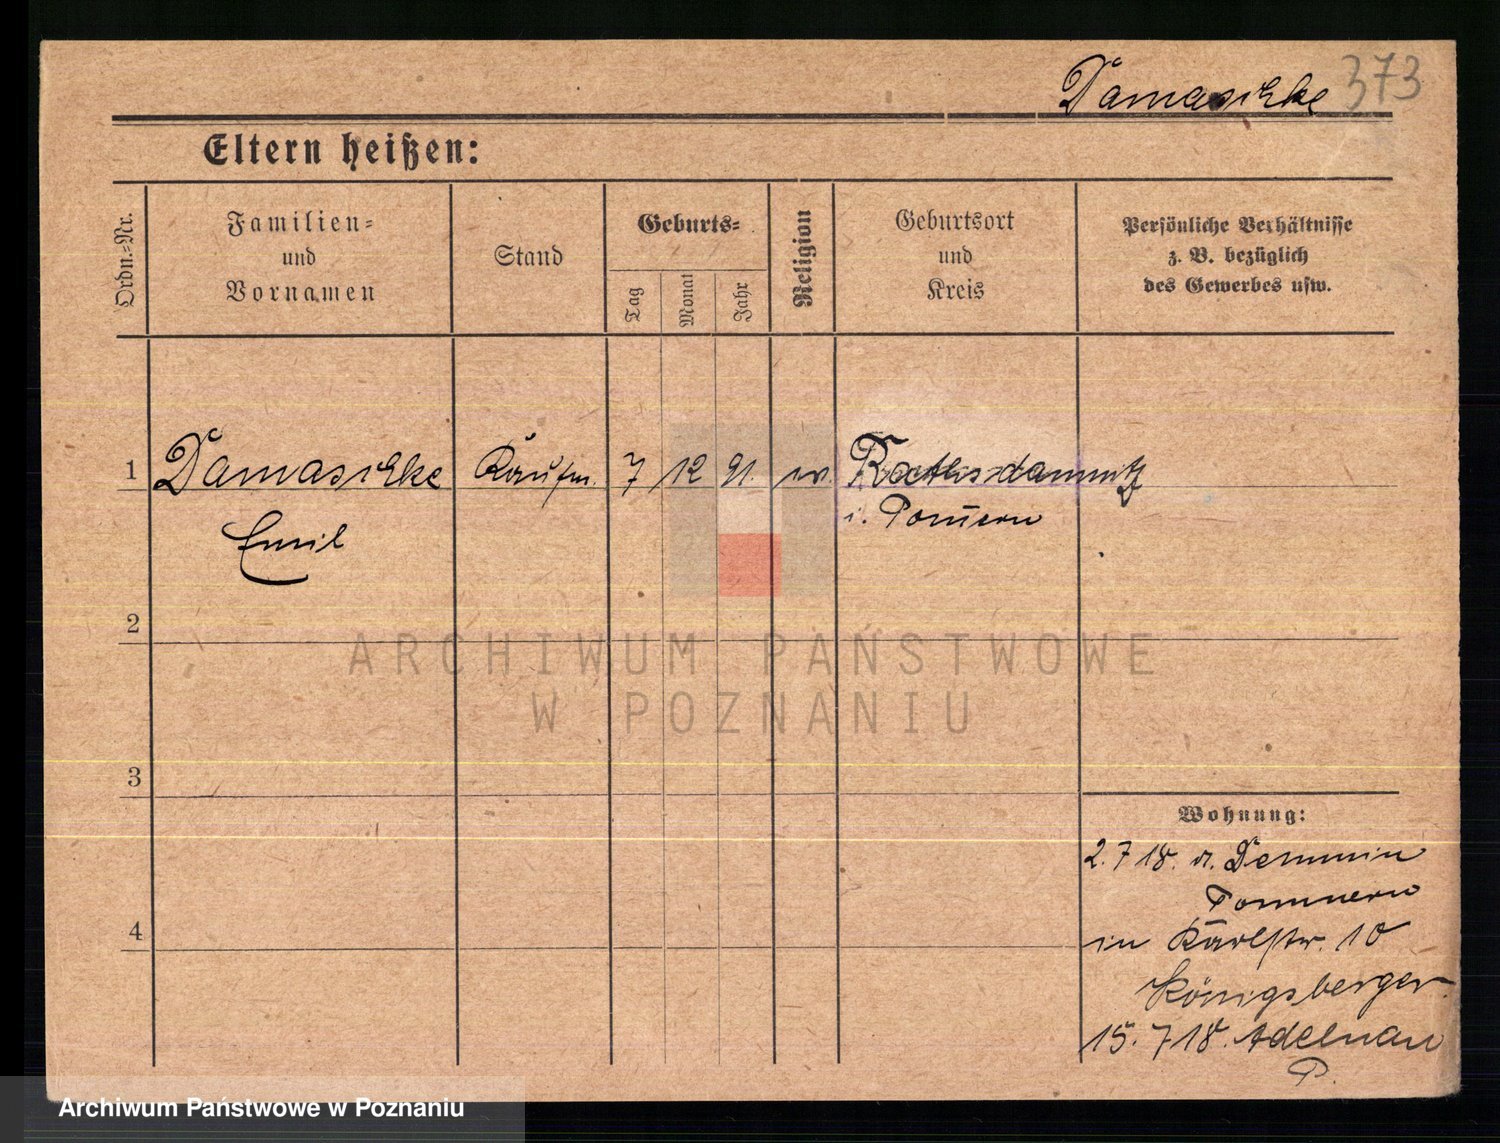 Damaschke 373
Eltern heißen:
Ordn.=Nr.
Familien=
und
Vornamen
Stand
Geburts=
Tag
Monat
Jahr
Religion
Geburtsort
und
Kreis
Persönliche Verhältnisse
z. B. bezüglich
des Gewerbes usw.
1 Damaschke Kaufm. 7 12 91. ev. Rathsdamnitz
Emil
i. Pom̄ern
2
ARCHIWUM PAŃSTWOWE
W POZNANIU
3
Wohnung:
2.7 18. v. Demmin
Pommern
in Karlstr. 10
Königsberger
4
15. 7 18. Adelnau
P.
Archiwum Państwowe w Poznaniu